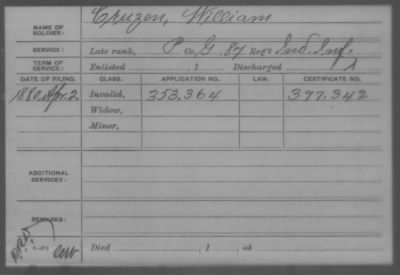 NAME OF SOLDIER: Cruzen, William
SERVICE: Late rank, P Co. G, 87 Reg't Ind. Inf.
TERM OF SERVICE: Enlisted , 1 Discharged , 1
DATE OF FILING. CLASS. APPLICATION NO. LAW. CERTIFICATE NO.
1880 Apr. 2 Invalid, 353.364 397.342
Widow,
Minor,
ADDITIONAL SERVICES:
REMARKS:
Died , 1 , at